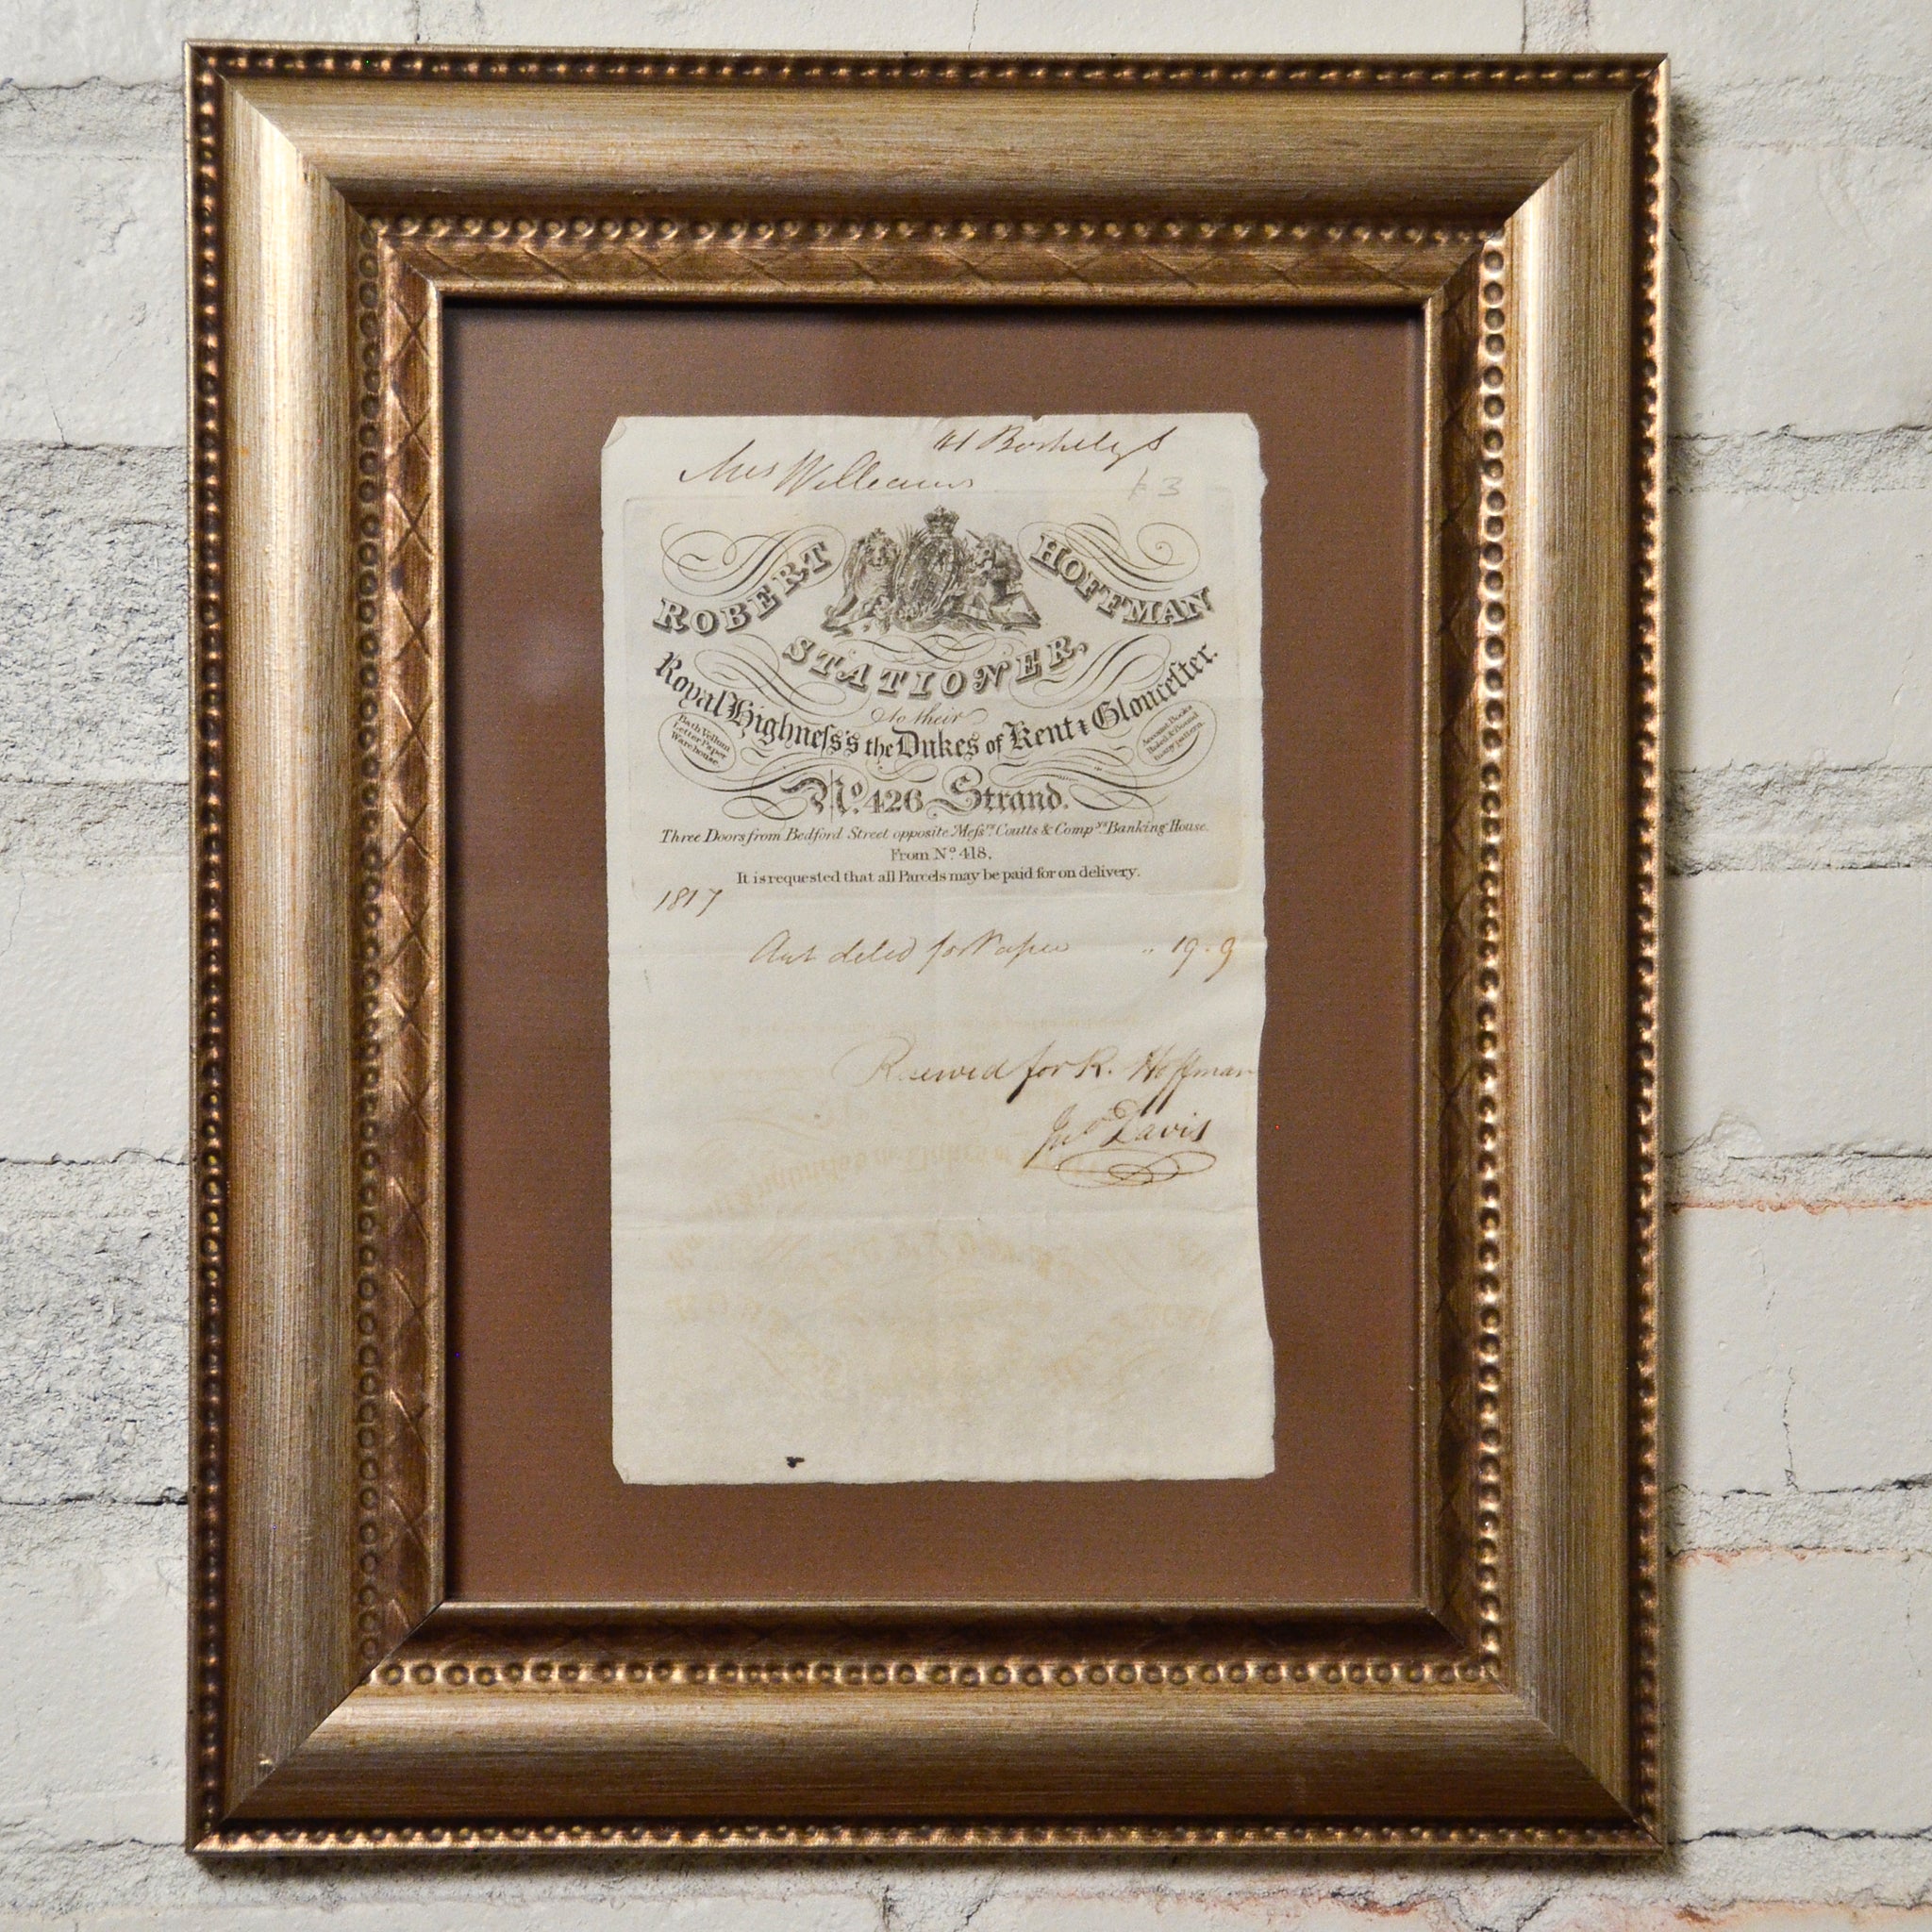 Mrs Williams
ROBERT HOFFMAN
STATIONER,
to their
Royal Highneſs's the Dukes of Kent & Gloucester.
Bath Vellum
Letter Paper
Warehouse
Account Books
Ruled & Bound
to any pattern.
No. 426 Strand.
Three Doors from Bedford Street opposite Meſsrs. Coutts & Compys. Banking House.
From No. 418.
It is requested that all Parcels may be paid for on delivery.
1817
deled for Paper " 19. 9
Received for R. Hoffman
Jno Davis